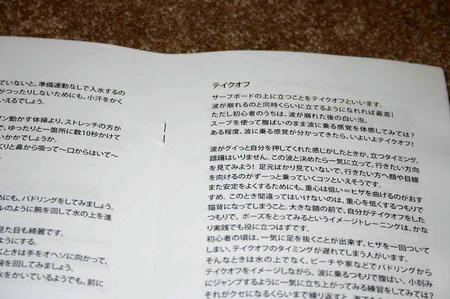 ていないと、準備運動なしで入水するの
がつったりしないためにも、小汗をかく
いえるでしょう。
ン動かす体操より、ストレッチの方が
で、ゆったりと一箇所に数10秒かけて
いかかでしょうか。
くりと鼻から吸って〜口からはいて〜
にも、パドリングをしてみましょう。
ルのように腕を回して水の上を進
見た目も綺麗です。
ようにする。
くときは手をオヘソに向かって、
を回してみましょう。
水をかいているようでも、前に
テイクオフ
サーフボードの上に立つことをテイクオフといいます。
波が崩れるのと同時くらいに立てるようになれれば最高！
ただし初心者のうちは、波が崩れた後の白い泡、
スープを使って腹ばいのまま波に乗る感覚を体感してみては？
ある程度、波に乗る感覚が分かってきたら、いよいよテイクオフ！
波がグイっと自分を押してくれた感じがしたときが、立つタイミング。
躊躇はいりません。この波と決めたら一気に立って、行きたい方向
を見てみよう！ 足元ばかり見ていないで、行きたい方へ顔や目線
を向けるのがすーっと乗っていくコツといえそうです。
また安定をよくするためにも、重心は低い＝ヒザを曲げるのがおす
すめ。このとき間違ってはいけないのは、重心を低くするつもりで
猫背になってしまうこと。大きな鏡の前で、自分がテイクオフをした
つもりで、ポーズをとってみるというイメージトレーニングは、かな
り実践でも役に立つはずです。
初心者の頃は、一気に足を抜くことが出来ず、ヒザを一回ついて
しまい、テイクオフのタイミングが遅れてしまう人がいます。
そんなときは水の上でなく、ビーチや家などでパドリングから
テイクオフをイメージしながら、波に乗るつもりで腹ばい、小刻み
にジャンプするように一気に立ち上がってみる練習をしてみては？
それがクセになるくらいまで繰り返す、海